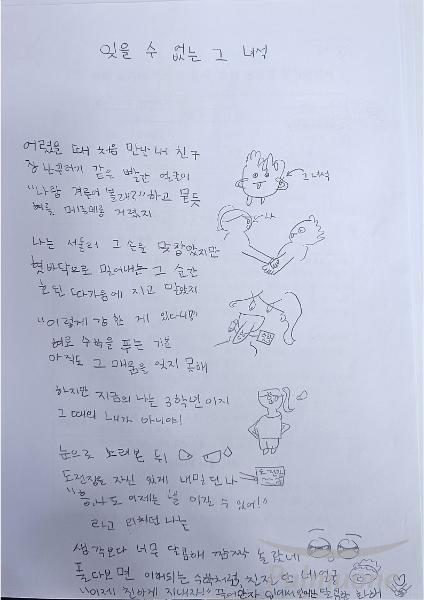 잊을 수 없는 그 녀석
어렸을 때 처음 만난 내 친구
장난꾸러기 같은 빨간 얼굴이
"나랑 겨루어 볼래?" 하고 묻듯
혀를 메롱메롱 거렸지
그 녀석
나
나는 서둘러 그 손을 맞잡았지만
혓바닥으로 밀어내는 그 순간
혼된 따가움에 지고 말았지
"이렇게 강한 게 있다니!"
수학을 푸는 기분
아직도 그 매콤을 잊지 못해
하지만 지금의 나는 3학년이지
그 때의 내가 아니야!
눈으로 노려본 뒤
도전장을 자신 있게 내민 나
도전장
"흥, 나도 이제는 널 이길 수 있어!"
라고 외치던 나는
생각보다 너무 달콤해 깜짝 놀랐네
풀다보면 이해되는 수학처럼, 진지한 녀석
"이제 친하게 지내자!"